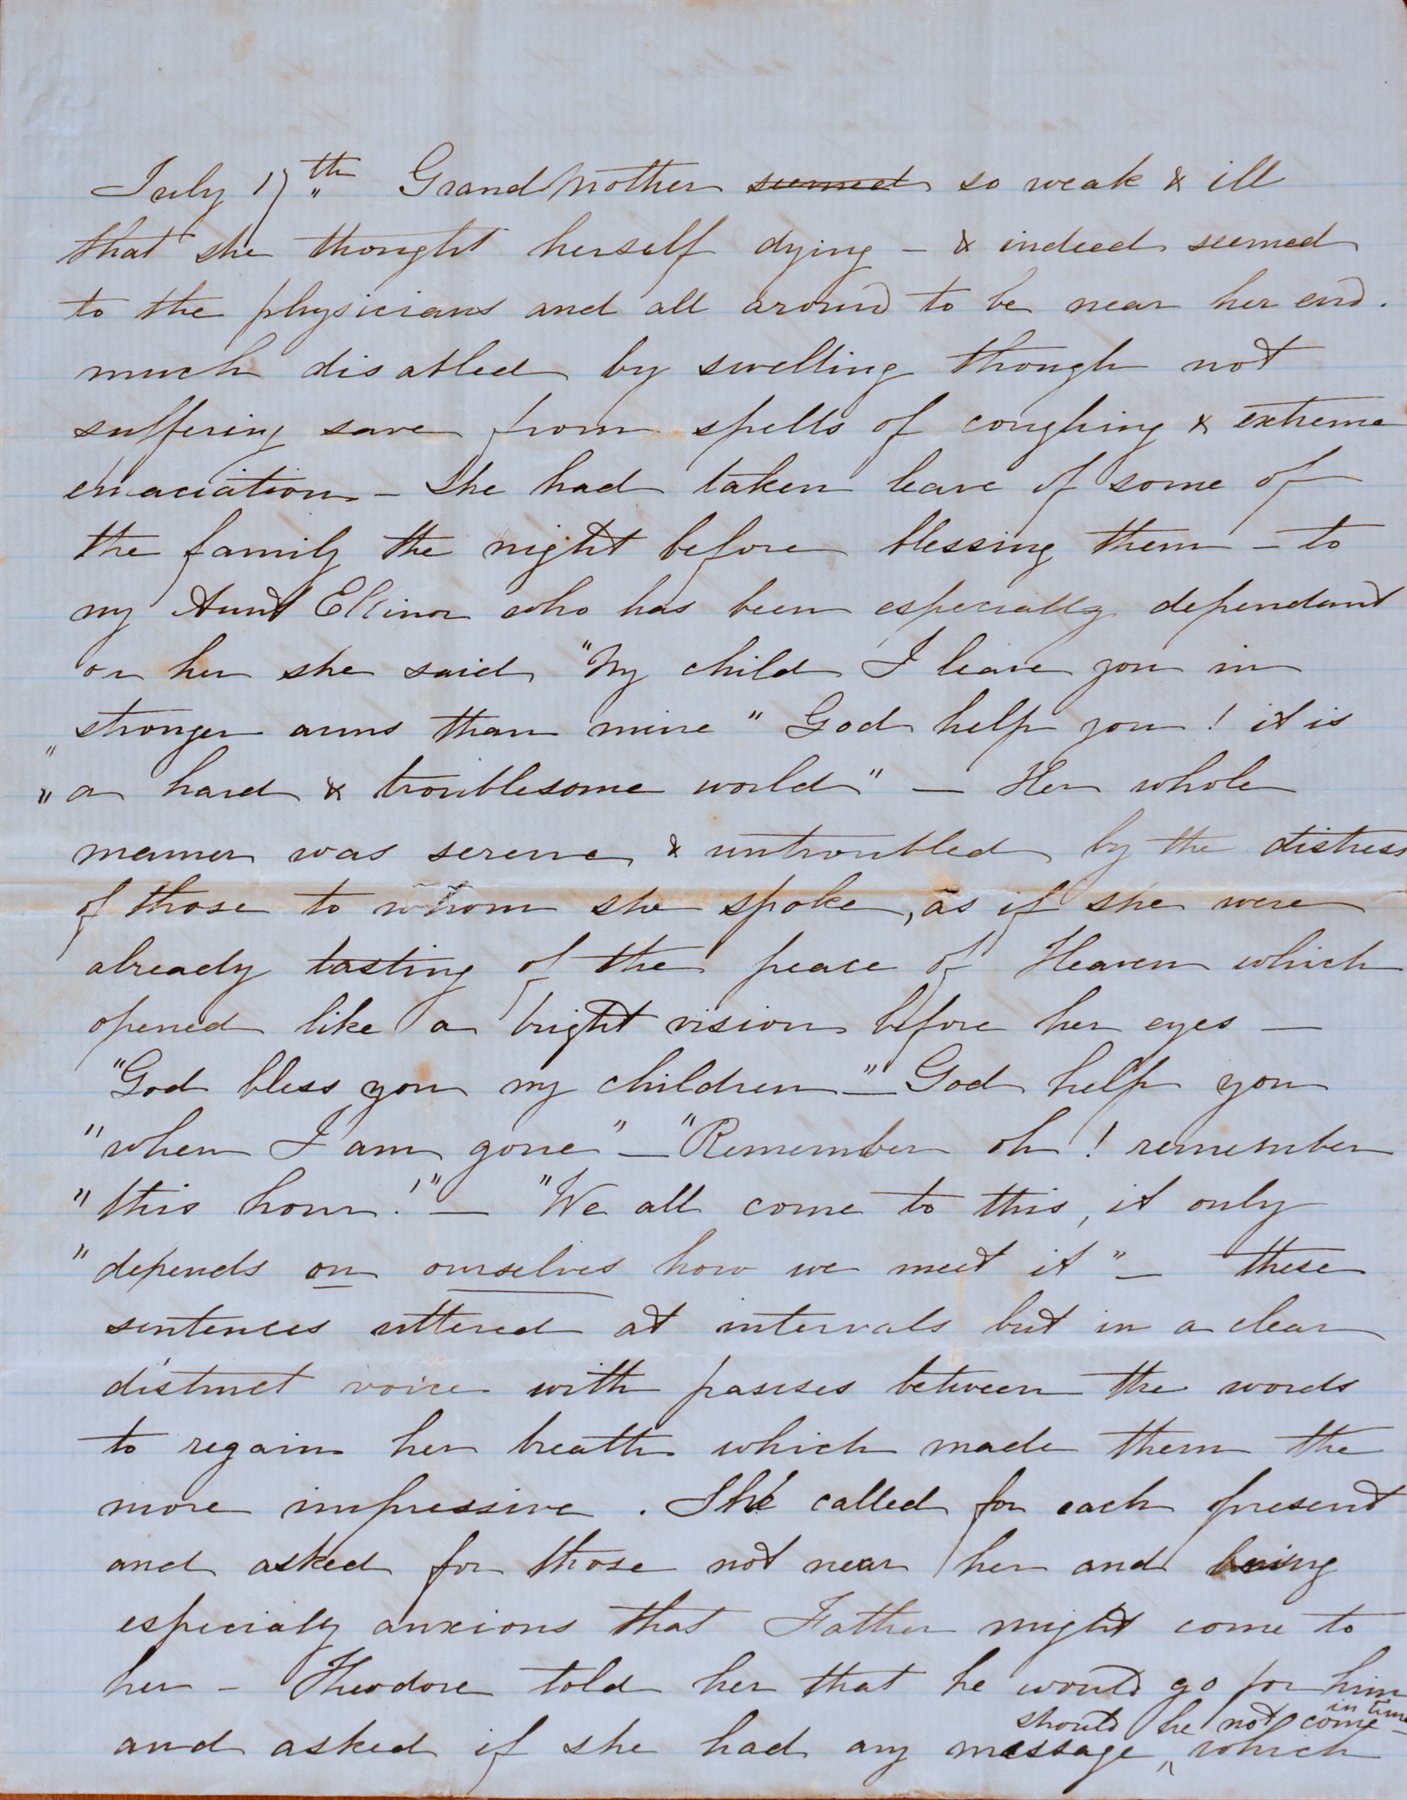 July 17th GrandMother seemed so weak & ill
that she thought herself dying – & indeed seemed
to the physicians and all around to be near her end.
much disabled by swelling though not
suffering save from spells of coughing & extreme
emaciation – She had taken leave of some of
the family the night before blessing them – to
my Aunt Ellinor who has been especially dependant
on her she said "My child I leave you in
stronger arms than mine" God help you! it is
" " a hard & troublesome world" – Her whole
manner was serene & untroubled by the distress
of those to whom she spoke, as if she were
already tasting of the peace of Heaven which
opened like a bright vision before her eyes –
"God bless you my children" – God help you
"when I am gone" – "Remember oh! remember
"this hour!" – "We all come to this, it only
"depends on ourselves how we meet it" – these
sentences uttered at intervals but in a clear
distinct voice with pauses between the words
to regain her breath which made them the
more impressive. She called for each present
and asked for those not near her and being
especialy anxious that Father might come to
her – Theodore told her that he would go for him
should he not come in time –
and asked if she had any message, which